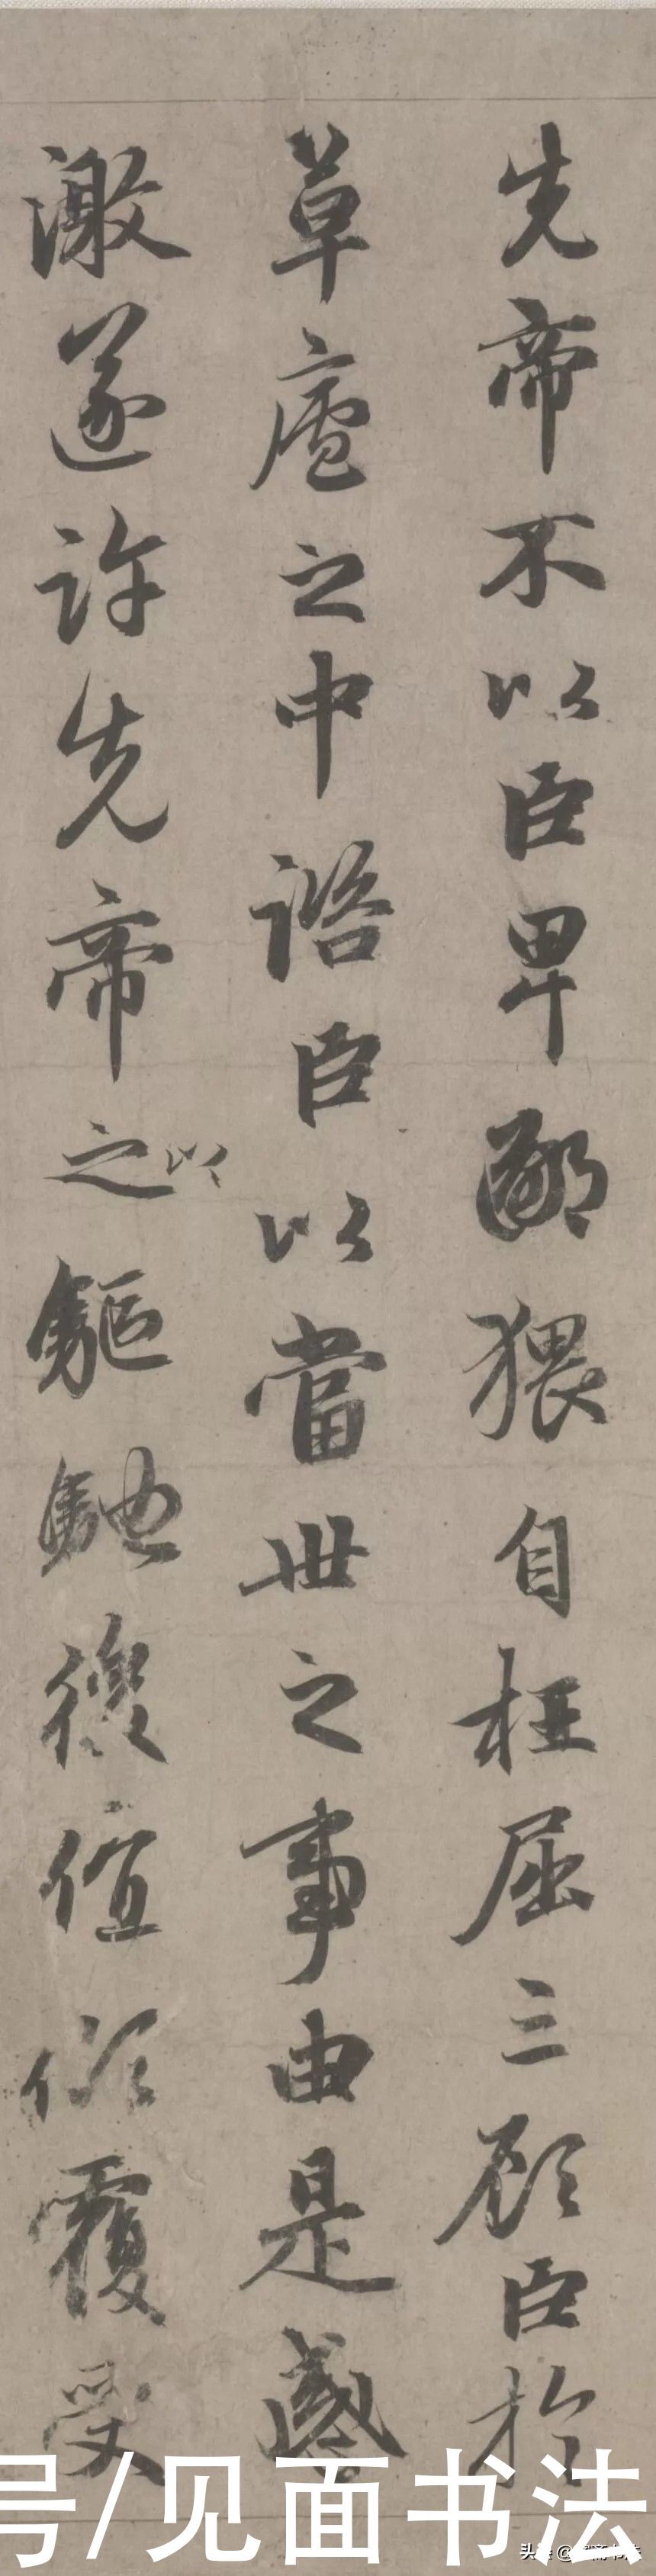 先帝不以臣卑鄙猥自枉屈三顧臣於
草廬之中諮臣以當世之事由是感
激遂許先帝之以驅馳後值傾覆受
号/见面书法
头条 @